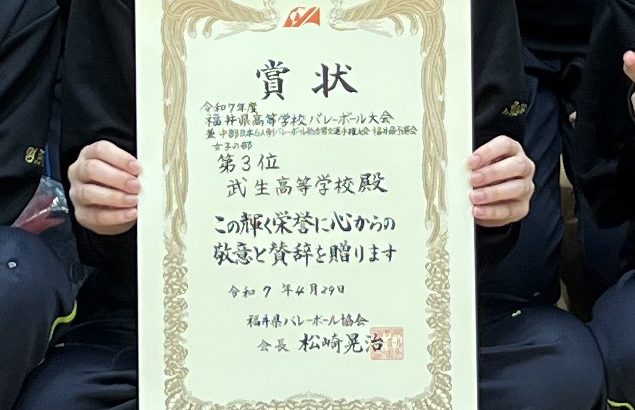 賞状
令和7年度
福井県高等学校バレーボール大会
兼 中部日本6人制バレーボール総合男女選手権大会 福井県予選会
女子の部
第3位
武生高等学校殿
この輝く栄誉に心からの
敬意と賛辞を贈ります
令和7年4月29日
福井県バレーボール協会
会長 松崎晃治